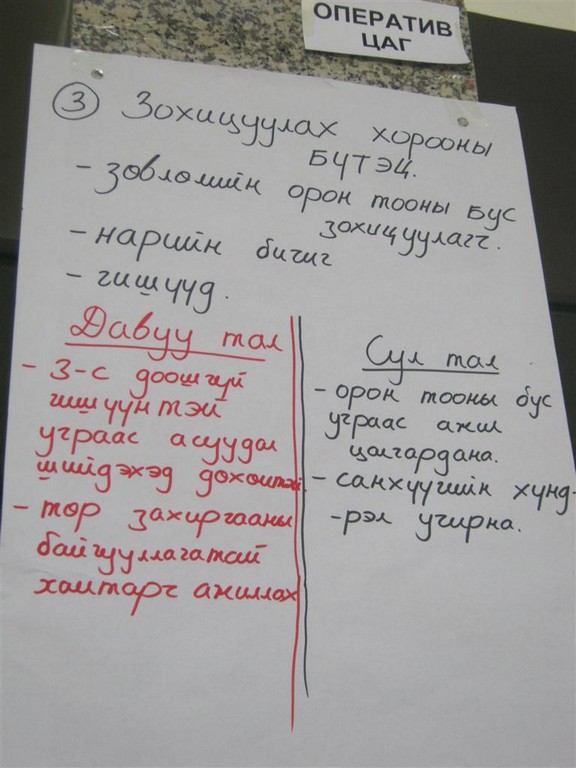 ОПЕРАТИВ
ЦАГ
③ Зохицуулах хорооны
БҮТЭЦ.
- зөвлөлийн орон тооны бус
зохицуулагч.
- нарийн бичиг
- гишүүд.
Давуу тал
- 3-с доошгүй
гишүүнтэй
учраас асуудал
шийдэхэд дөхөмтэй.
- төр захиргааны
байгууллагатай
хамтарч ажиллах
Сул тал
- орон тооны бус
учраас ажил
цалгардана.
- санхүүгийн хүнд-
-рэл учирна.